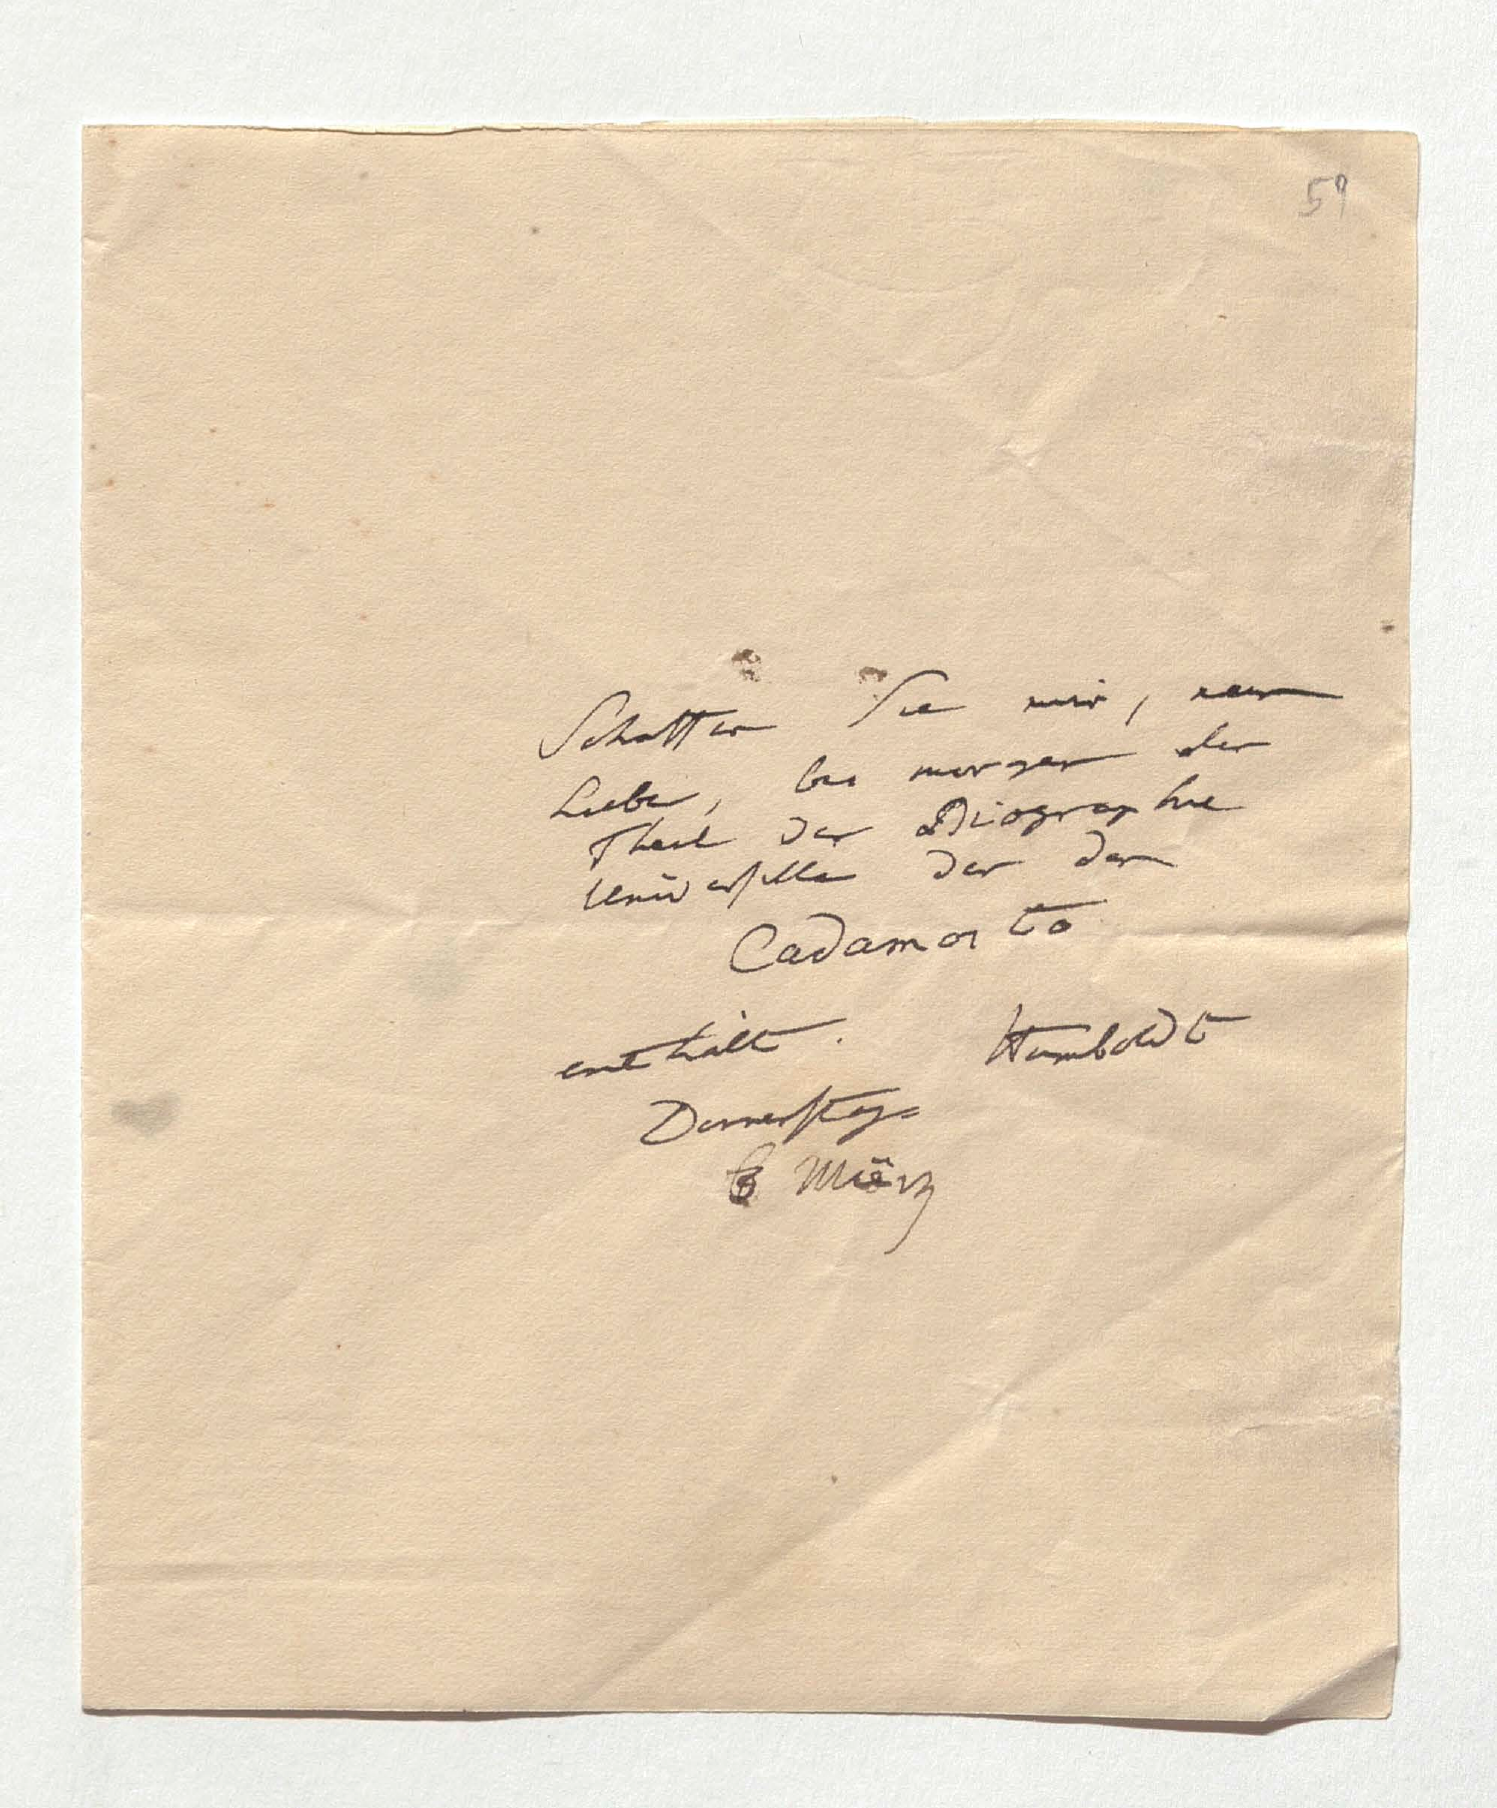 59
Schaffen Sie mir, mein
Lieber, bis morgen den
Theil der Biographie
Universelle der den
Cadamosto
enthält. Humboldt
Donnerstag
März